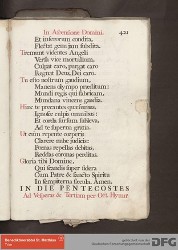 In Ascensione Domini. 421
Et inferorum condita,
Flectat genu jam subdita.
Tremunt videntes Angeli
Versâ vice mortalium,
Culpat caro, purgat caro
Regnat Deus, Dei caro.
Tu esto nostrum gaudium,
Manens olympo præditum:
Mundi regis qui fabricam,
Mundana vincens gaudia.
Hinc te precantes quæsumus,
Ignosce culpis omnibus:
Et corda sursum subleva,
Ad te superna gratia.
Ut cum repente cœperis
Clarere nube judicis:
Pœnas repellas debitas,
Reddas coronas perditas.
Gloria tibi Domine,
Qui scandis super sidera
Cum Patre & sancto Spiritu
In sempiterna sæcula. Amen.
IN DIE PENTECOSTES
Ad Vesperas & Tertiam per Oct. Hymnus
Benediktinerabtei St. Matthias
Trier
DFG